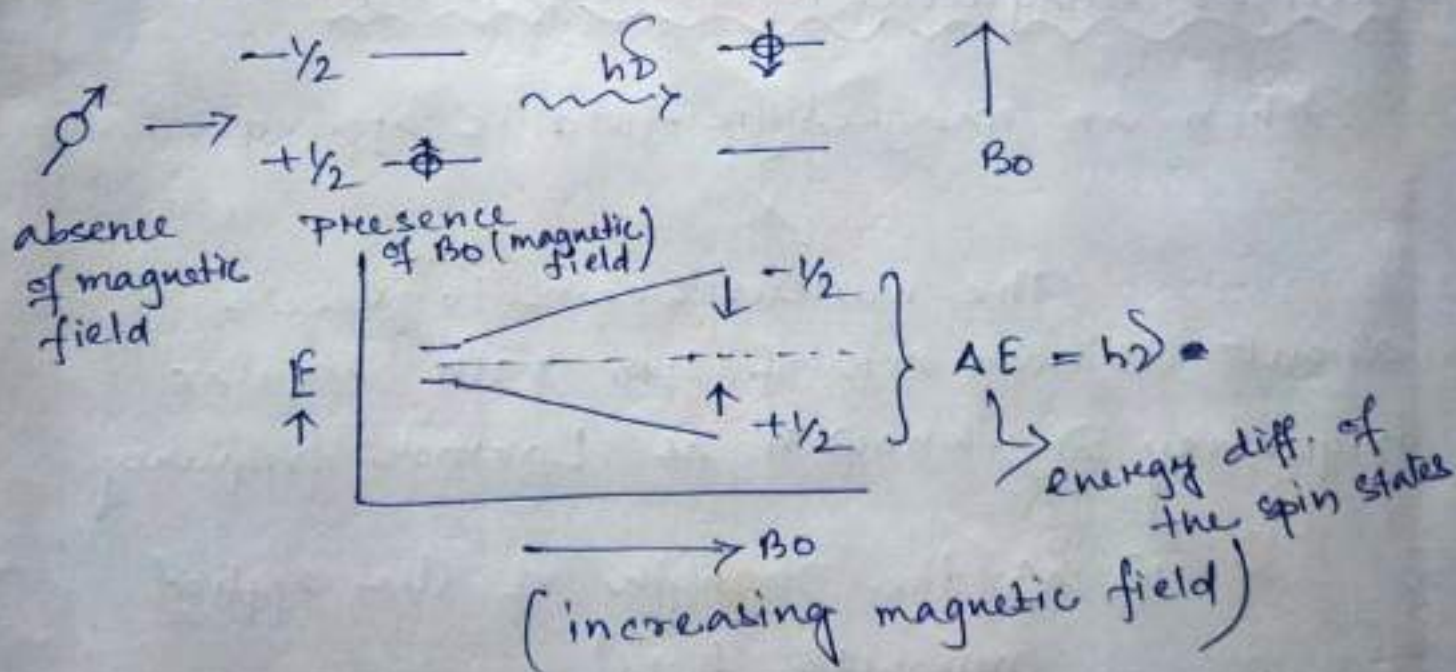 -1/2
hν
B0
+1/2
absence
of magnetic
field
presence
of B0 (magnetic
field)
-1/2
E
ΔE = hν
+1/2
energy diff. of
the spin states
B0
(increasing magnetic field)